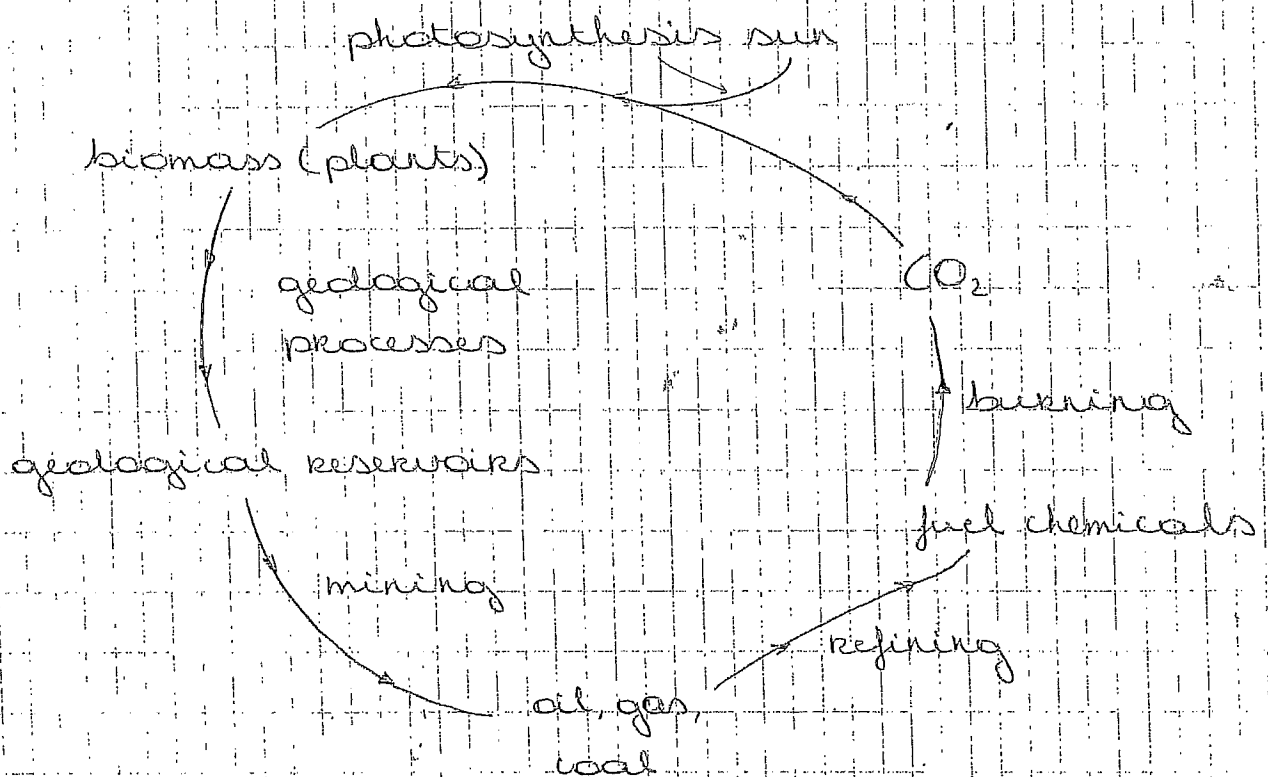 photosynthesis sun
biomass (plants)
geological
processes
CO₂
burning
geological reservoirs
fuel chemicals
mining
refining
oil, gas,
coal